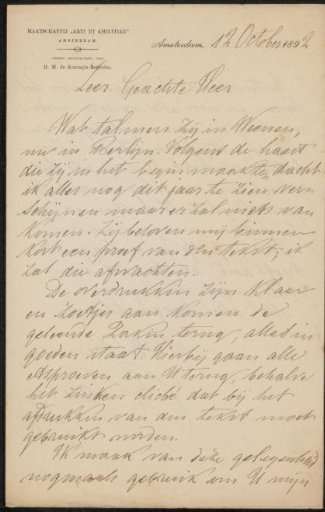 MAATSCHAPPIJ „ARTI ET AMICITIAE"
AMSTERDAM.
H. M. de Koningin-Regentes.
Amsterdam, 12 October 1892
Zeer Geachte Heer
Wat talmen zij in Weenen,
nu in Berlijn. Volgens de haast
die zij in het begin maakten, dacht
ik alles nog dit jaar te zien ver-
schijnen maar er zal niets van
komen. Zij beloven mij binnen
kort een proef van den tekst; ik
zal die afwachten.
De overdrukken zijn klaar
en zoodra aan komen de
geleende zaken terug, alles in
goeden staat. Hierbij gaan alle
proeven aan U terug, behalve
het zinken cliché dat bij het
afdrukken van den tekst moet
gebruikt worden.
Ik maak van deze gelegenheid
nogmaals gebruik om U mijn